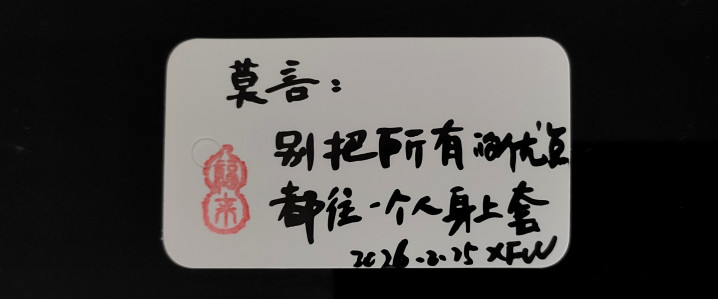 莫言：
别把所有的优点
都往一个人身上套
2026.2.25 XFW
福来